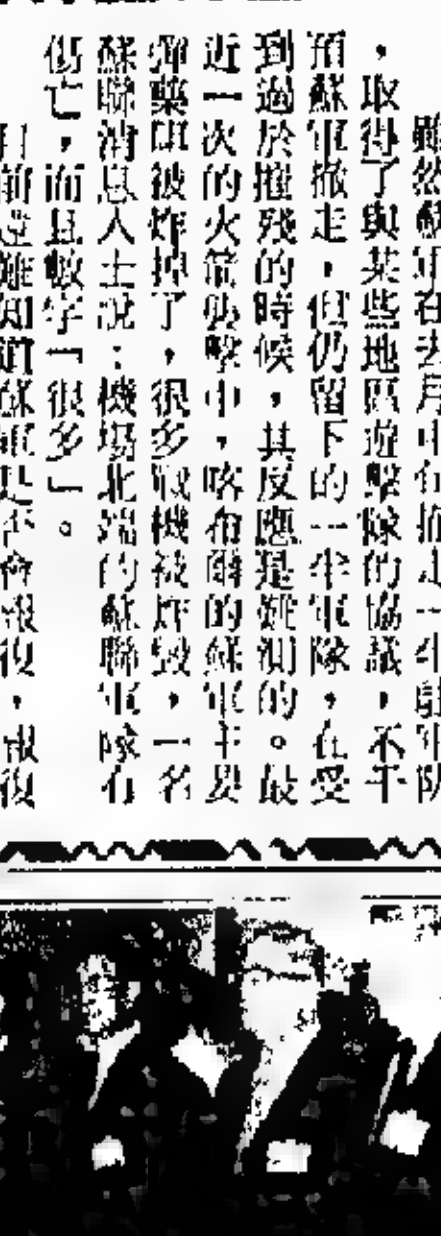 雖然蘇軍在去月中旬撤走一半駐軍隊
，取得了與某些地區遊擊隊的協議，不干
預蘇軍撤走，但仍留下的一半軍隊，在受
到過於摧殘的時候，其反應是
的。最
近一次的火箭襲擊中，喀布爾的蘇軍主要
彈藥庫被炸掉了，很多戰機被炸毀，一名
蘇聯消息人士說：機場北端的蘇聯軍隊有
傷亡，而且數字「很多」。
目前還難知道蘇軍是否會報復，報復